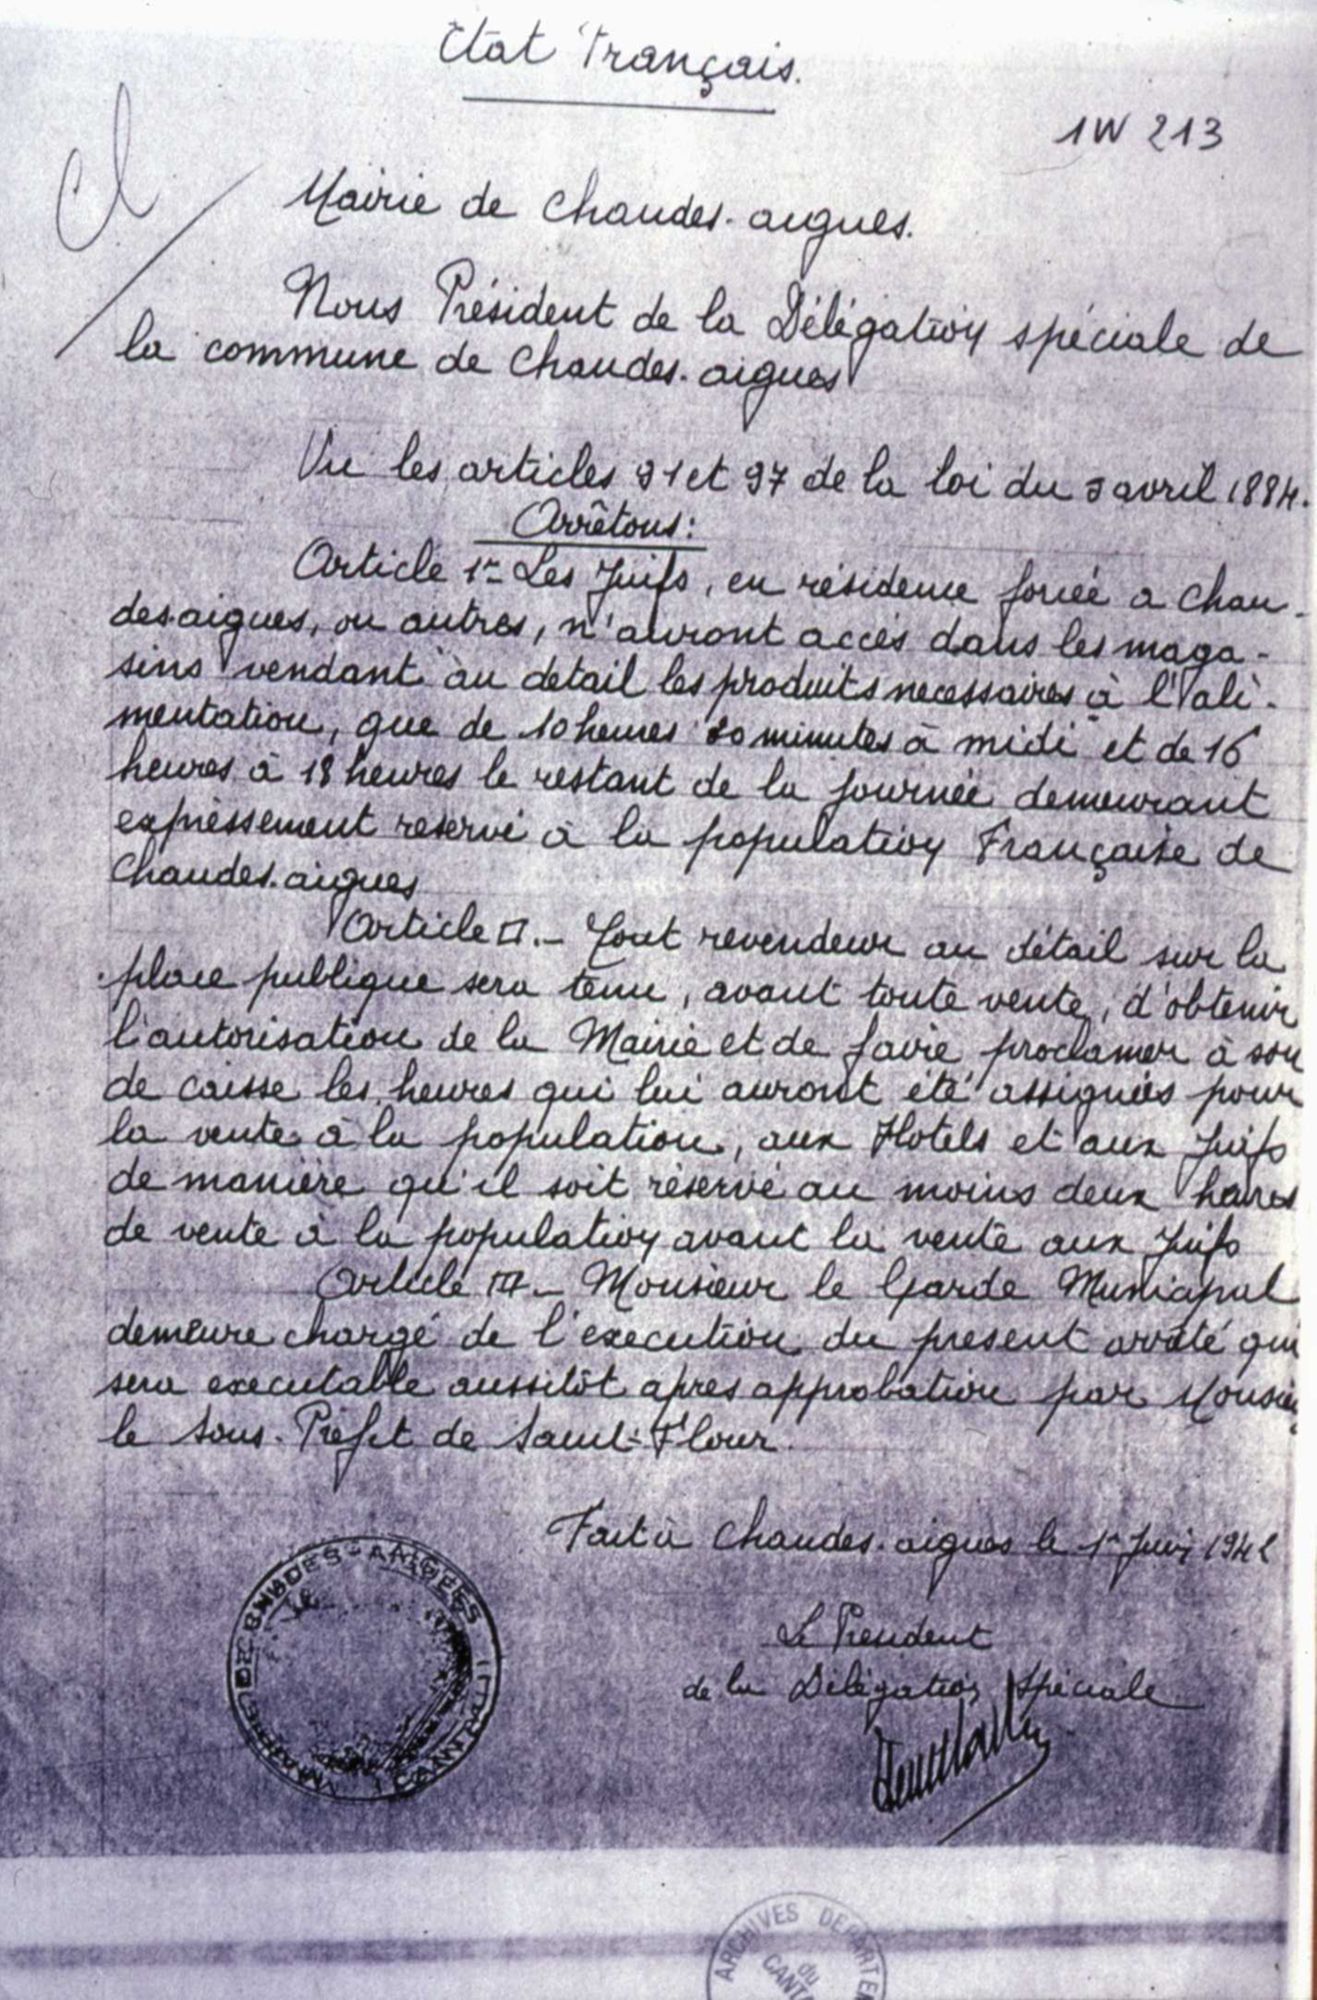 Etat Français.
1W 213
Mairie de Chaudes-aigues.
Nous Président de la Délégation spéciale de
la commune de Chaudes-aigues
Vu les articles 91 et 97 de la loi du 5 avril 1884.
Arrêtons:
Article 1er Les Juifs, en résidence forcée a Chau-
des-aigues, ou autres, n'auront accès dans les maga-
sins vendant au détail les produits necessaires à l'ali-
mentation, que de 10 heures 30 minutes à midi et de 16
heures à 18 heures le restant de la journée demeurant
expressement reservé à la population Française de
Chaudes-aigues
Article II.- Tout revendeur au détail sur la
place publique sera tenu, avant toute vente, d'obtenir
l'autorisation de la Mairie et de faire proclamer à son
de caisse les heures qui lui auront été assignées pour
la vente à la population, aux Hotels et aux Juifs
de manière qu'il soit réservé au moins deux heures
de vente à la population avant la vente aux Juifs
Article III- Monsieur le Garde Municipal
demeure chargé de l'execution du present arrêté qui
sera executable aussitôt apres approbation par Monsieur
le Sous-Préfet de Saint-Flour.
Fait à Chaudes-aigues le 1er Juin 1942
Le President
de la Délégation Spéciale
MAIRIE DE CHAUDES-AIGUES (CANTAL)
ARCHIVES DEPARTEM
du
CANTA